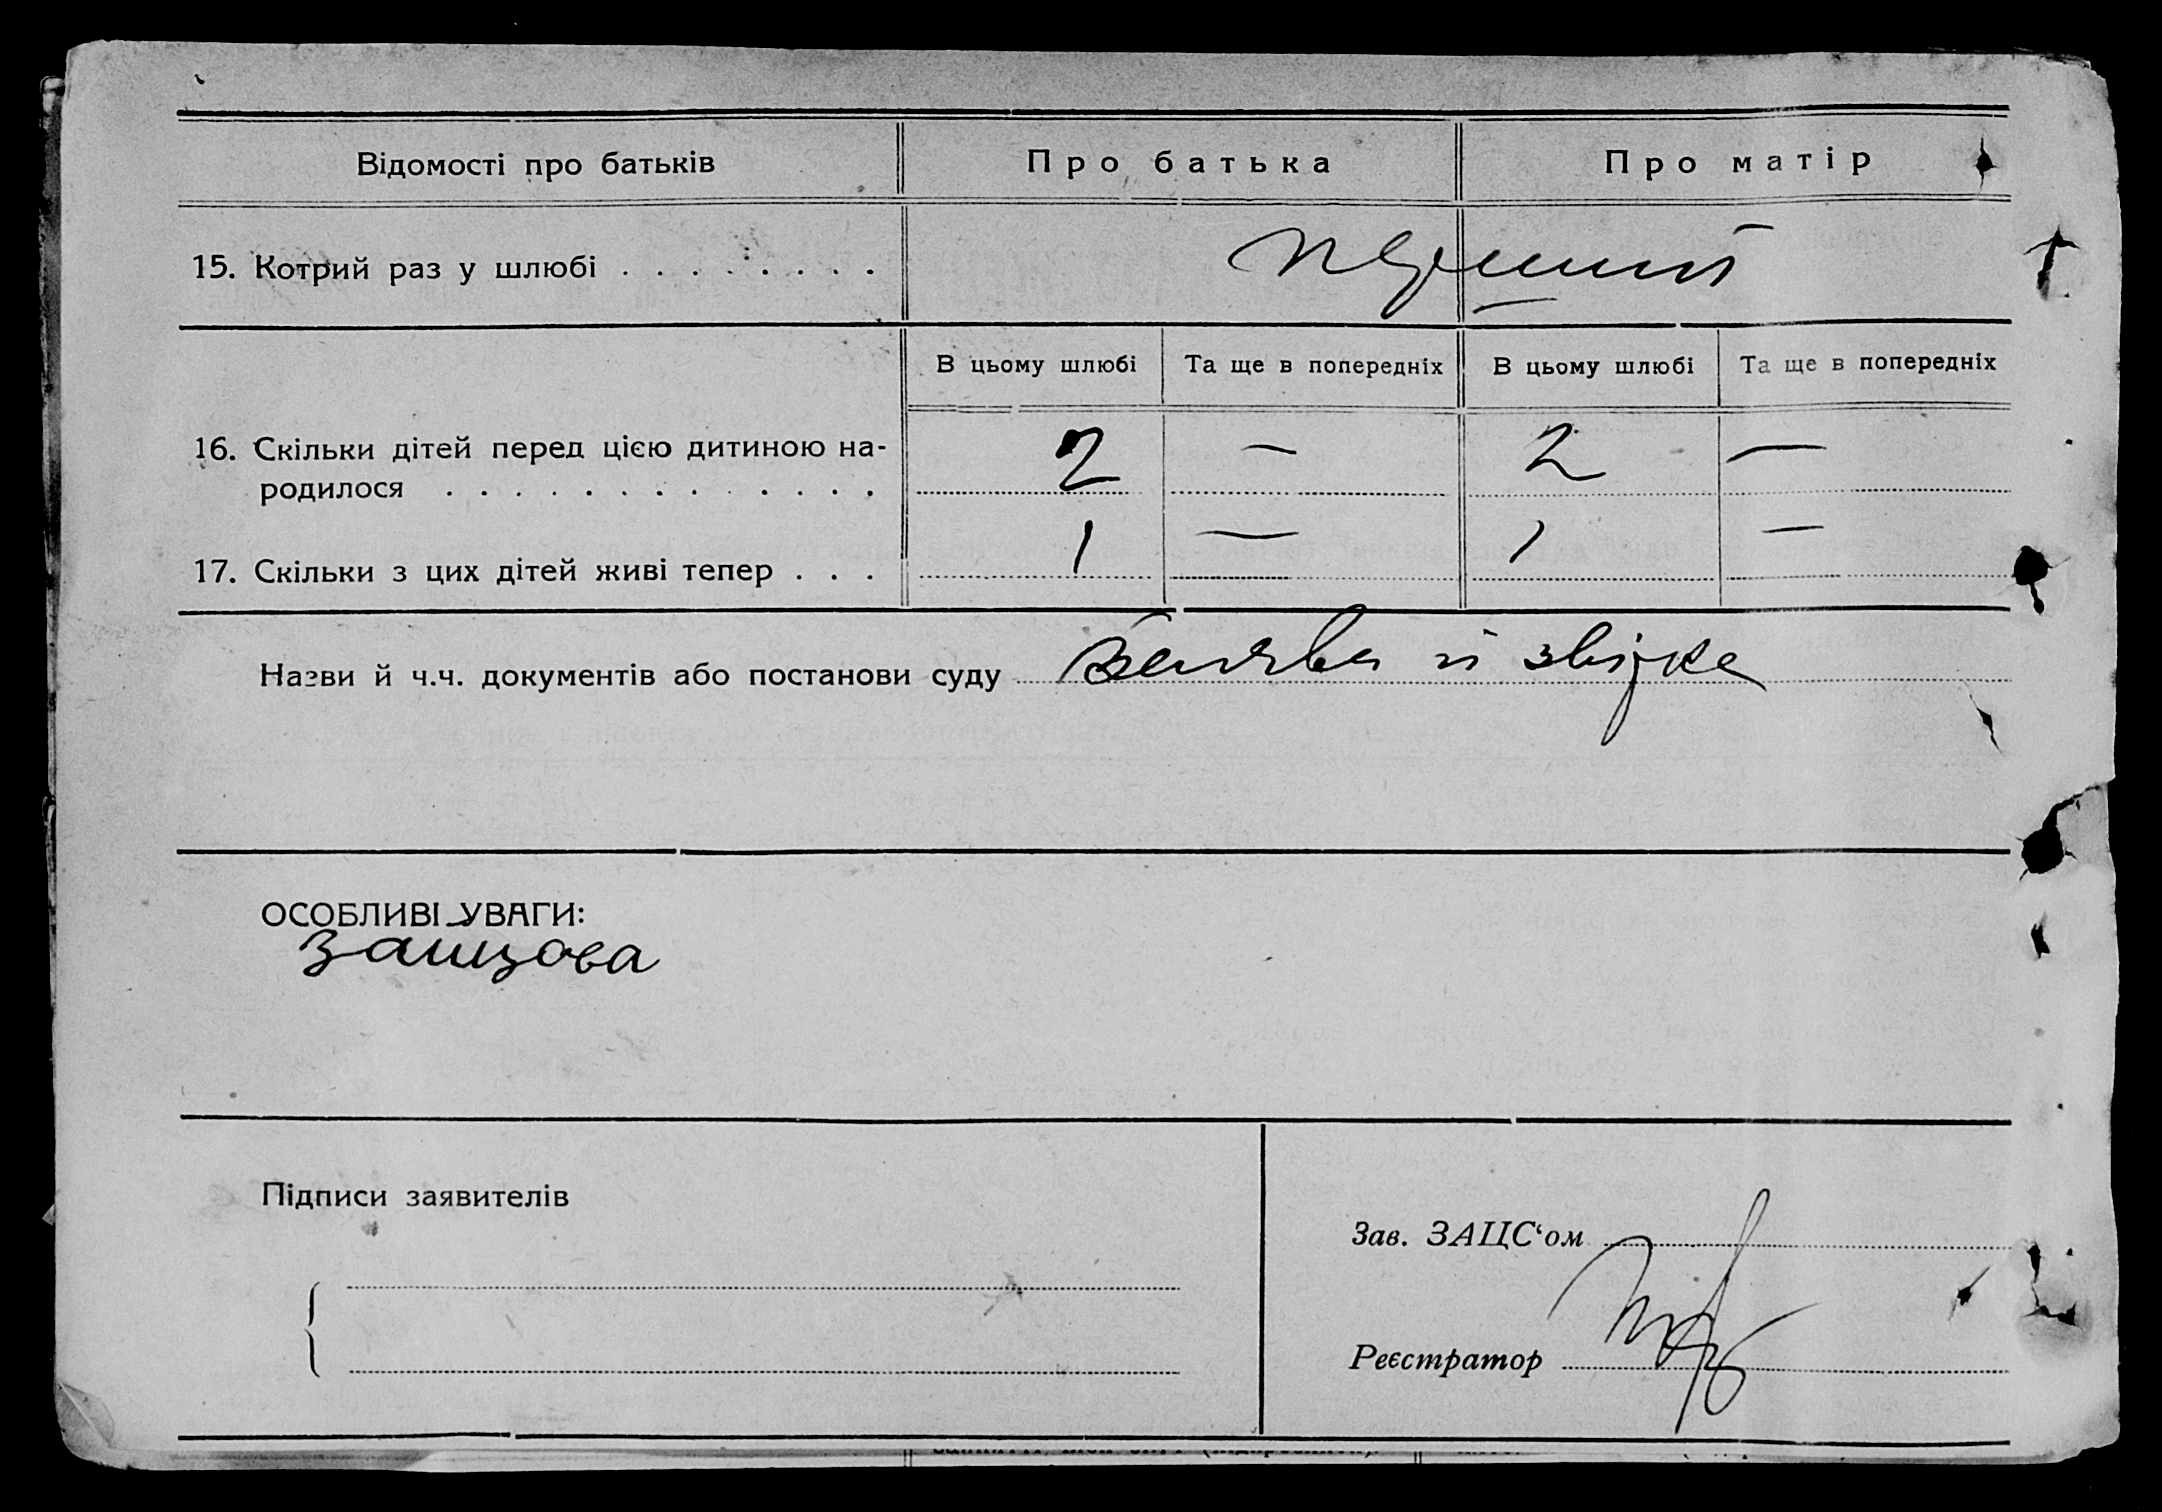 Відомості про батьків
Про батька
Про матір
15. Котрий раз у шлюбі . . . . . . . .
перший
В цьому шлюбі
Та ще в попередніх
В цьому шлюбі
Та ще в попередніх
16. Скільки дітей перед цією дитиною на-
родилося . . . . . . . . . . . . .
2 — 2 —
17. Скільки з цих дітей живі тепер . . .
1 — 1 —
Назви й ч.ч. документів або постанови суду заява й звірка
ОСОБЛИВІ УВАГИ:
Підписи заявителів
Зав. ЗАЦС‘ом
Реєстратор